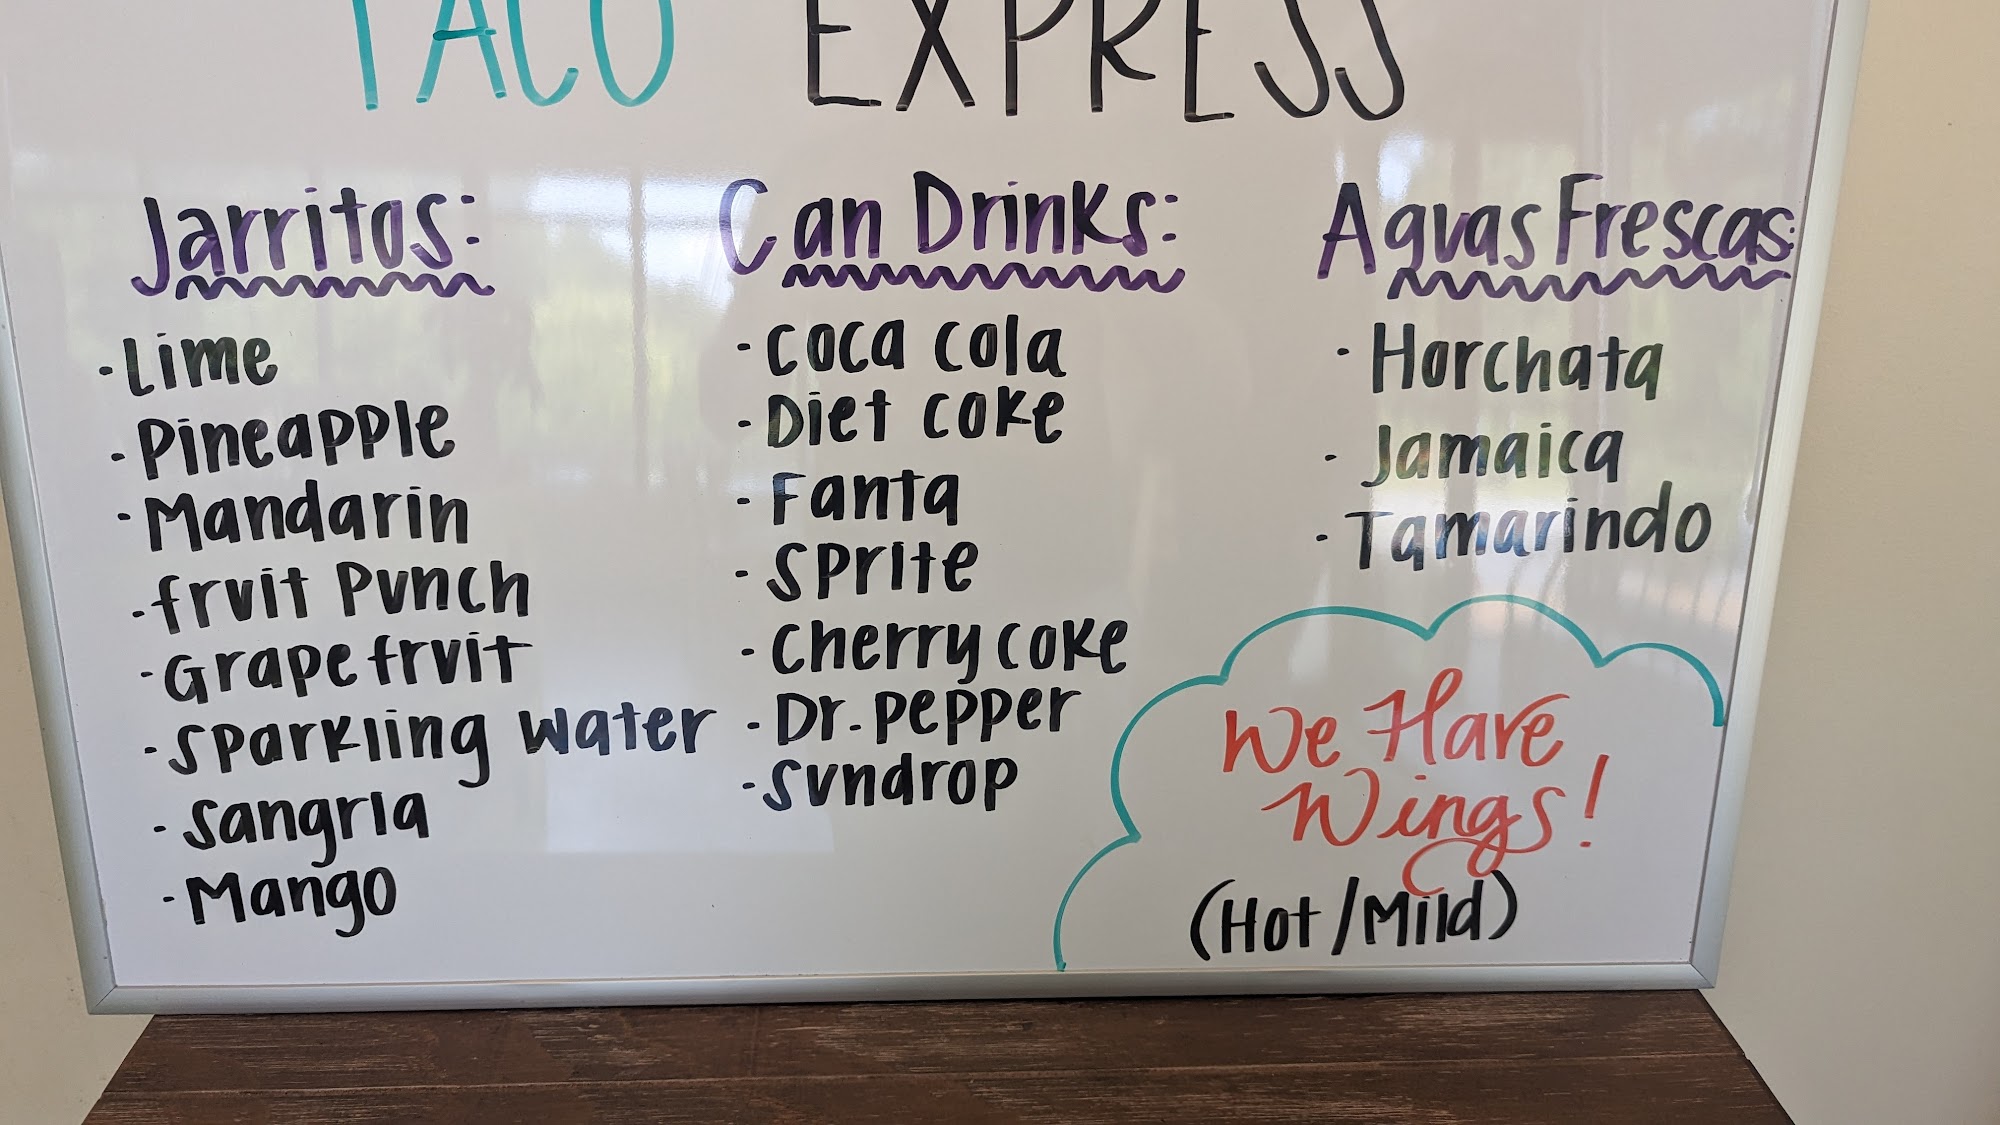 TACO EXPRESS
Jarritos:
· Lime
· Pineapple
· Mandarin
· fruit Punch
· Grapefruit
· Sparkling water
· Sangria
· Mango
Can Drinks:
· Coca cola
· Diet coke
· Fanta
· Sprite
· Cherry coke
· Dr. Pepper
· Sundrop
Aguas Frescas:
· Horchata
· Jamaica
· Tamarindo
We Have
Wings!
(Hot/Mild)